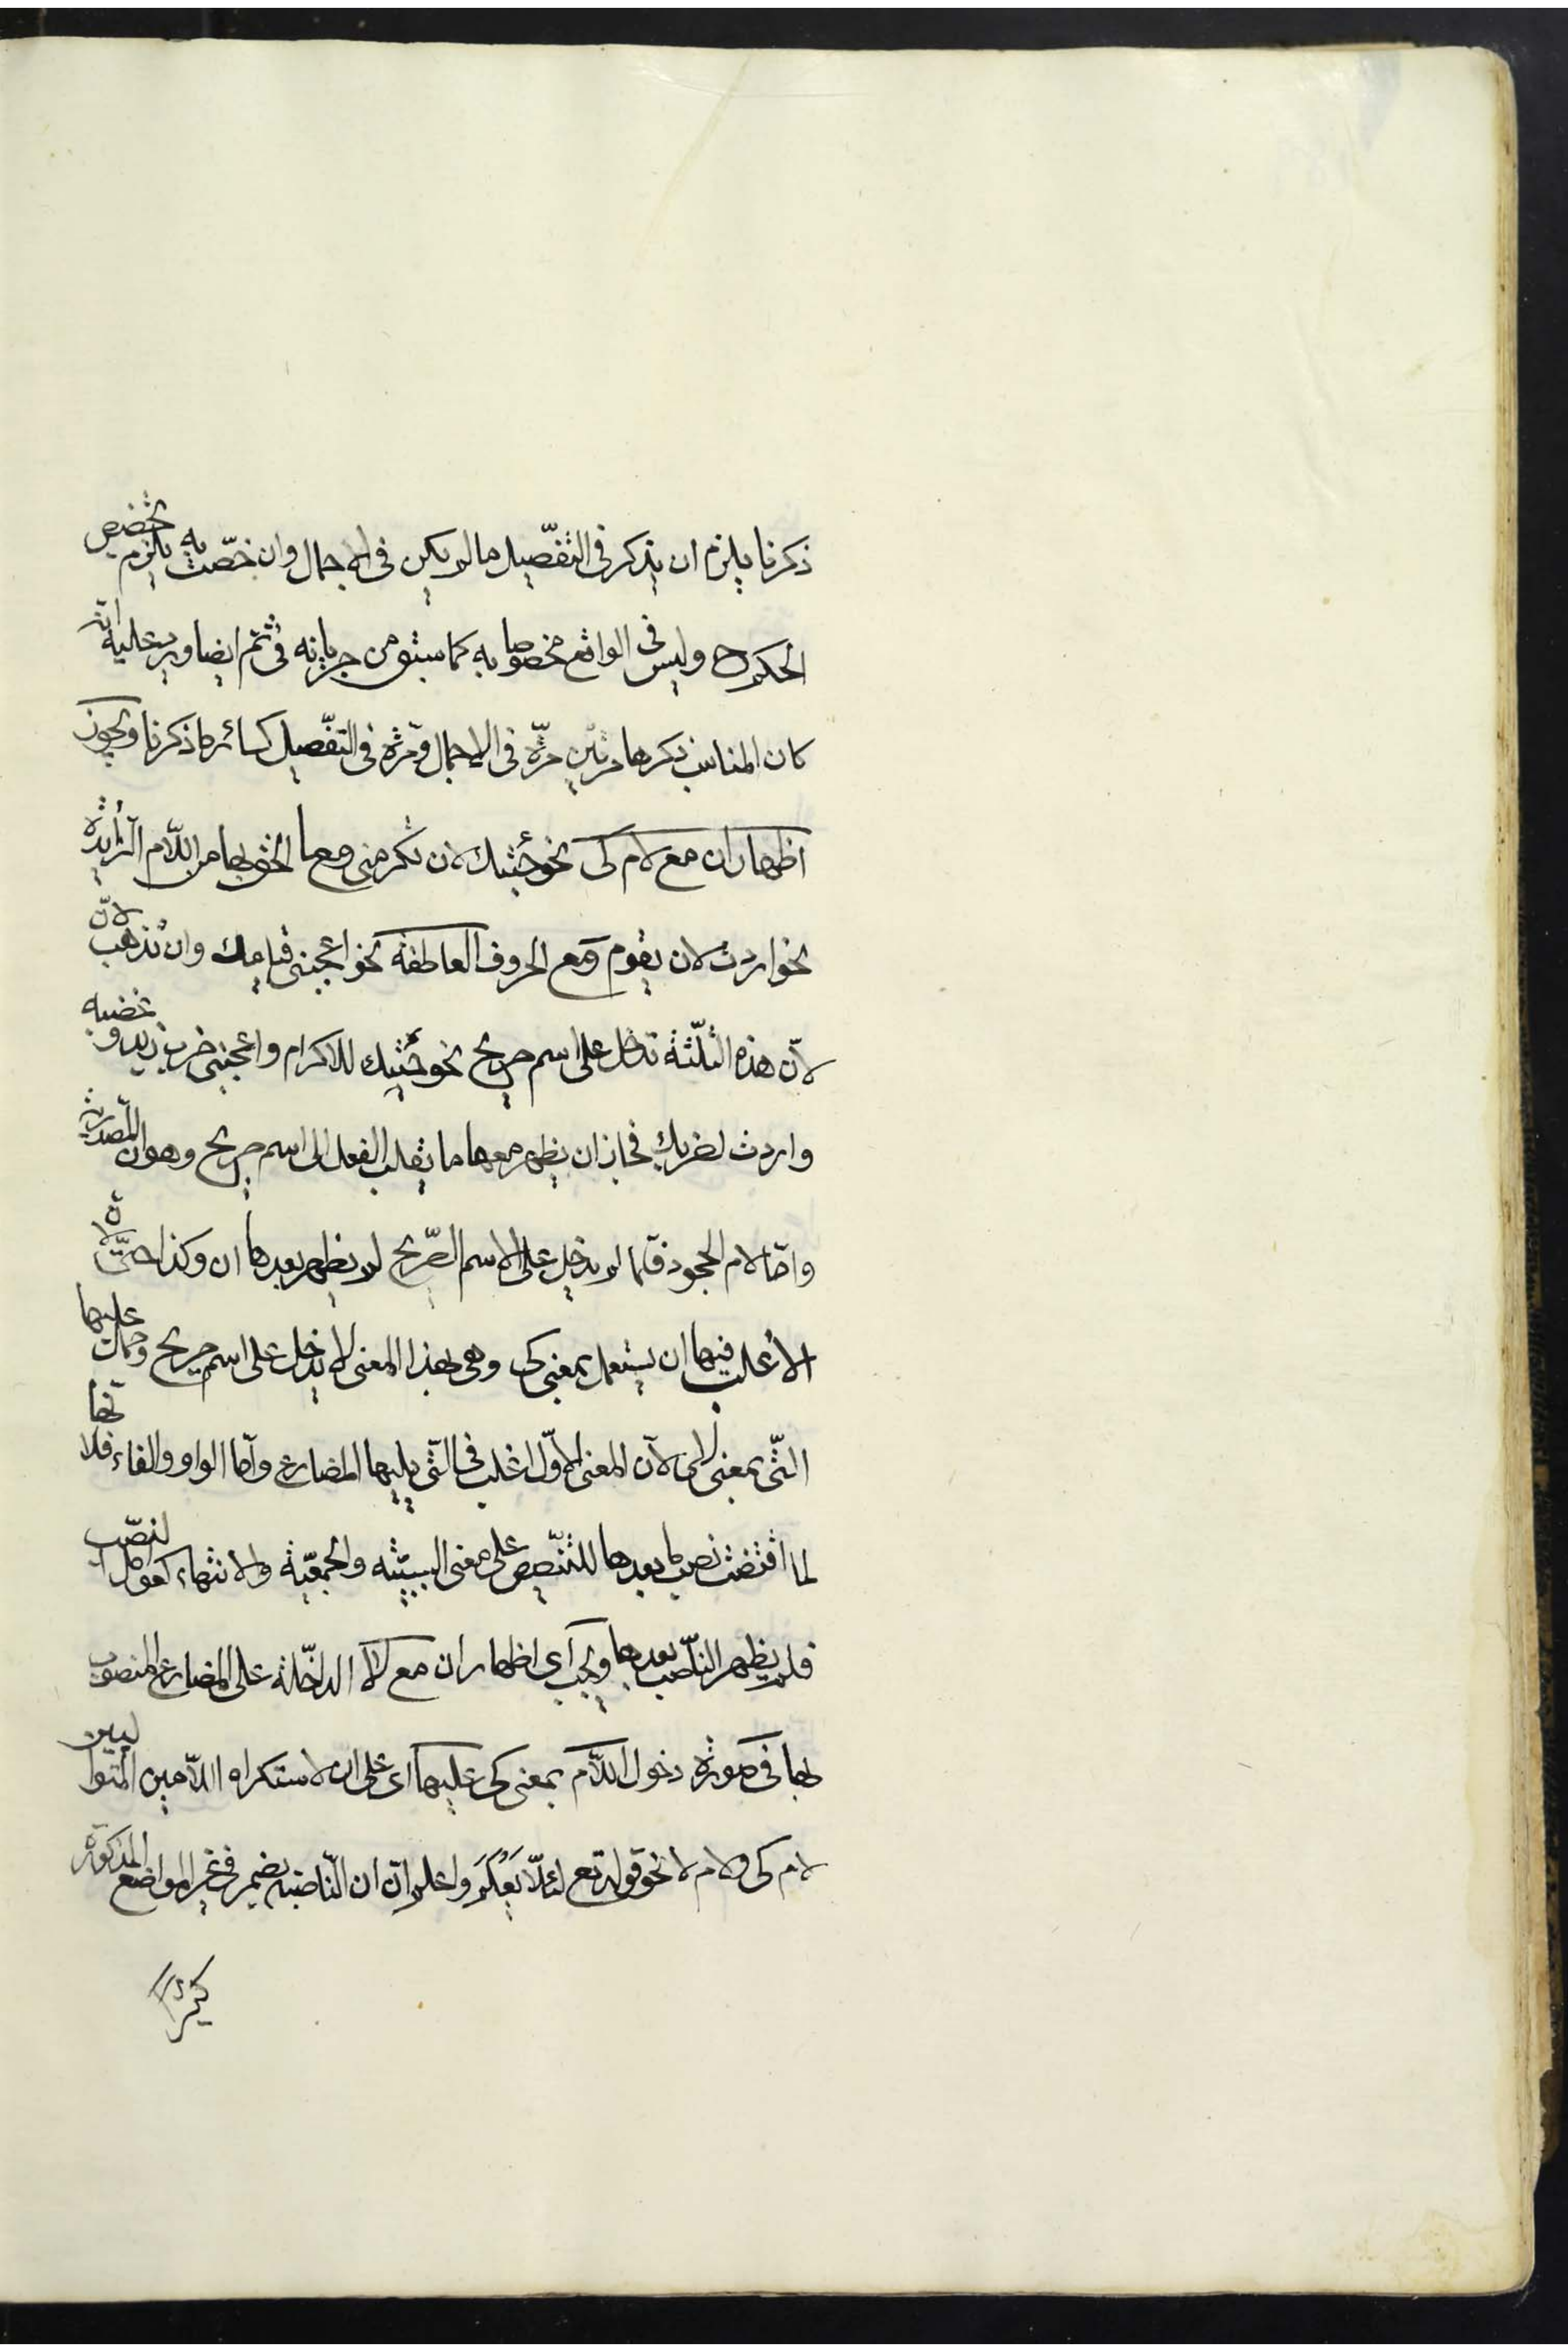 ذكرنا يلزم ان يذكر في التفصيل ما لم يكن في الاجمال وان خصت به يلزم تخصيص
الحكم وليس في الواقع مخصوصا به كما سبق من جريانه في ثم ايضا ويرد عليه انه
كان المناسب ذكرها مرتين مرة في الاجمال ومرة في التفصيل كسائر ما ذكرنا ويجوز
اظهار ان مع لام كى نحو جئتك لان تكرمني وما الحق بها من اللام الزائدة
نحو اردت لان يقوم ومع الحروف العاطفة نحو اعجبني قيامك وان تذهب لان
لان هذه الثلثة تدخل على اسم صريح نحو جئتك للاكرام واعجبني ضرب زيد وغضبه
واردت لضربك فجاز ان يظهر معها ما يقلب الفعل الى اسم صريح وهو ان المصدرية
واما لام الجحود فلما لم يدخل على الاسم الصريح لم يظهر بعدها ان وكذا حتى لان
الاغلب فيها ان يستعمل بمعنى كى وهى بهذا المعنى لا يدخل على اسم صريح وحملت عليها
التى بمعنى الى لان المعنى الاول اغلب فى التى يليها المضارع واما الواو والفاء فلانها
لما اقتضت نصب ما بعدها للتنصيص على معنى السببية والجمعية والانتهاء كعوامل النصب
فلم يظهر الناصب بعدها ويجب اى اظهار ان مع لا الداخلة على المضارع المنصوب
بها فى صورة دخول اللام بمعنى كى عليها اى على ان لاستكراه اللامين المتواليين
لام كى ولام لا نحو قوله تع لئلا يعلم واعلم ان ان الناصبة يضمر فى غير المواضع المذكورة
كثيرا